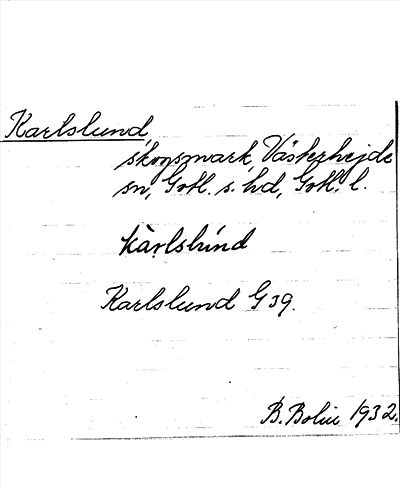 Karlslund,
skogsmark, Västerhejde
sn, Gotl. s. hd, Gotl. l.
kàrlslúnd
Karlslund G 39.
B. Bolin 1932.